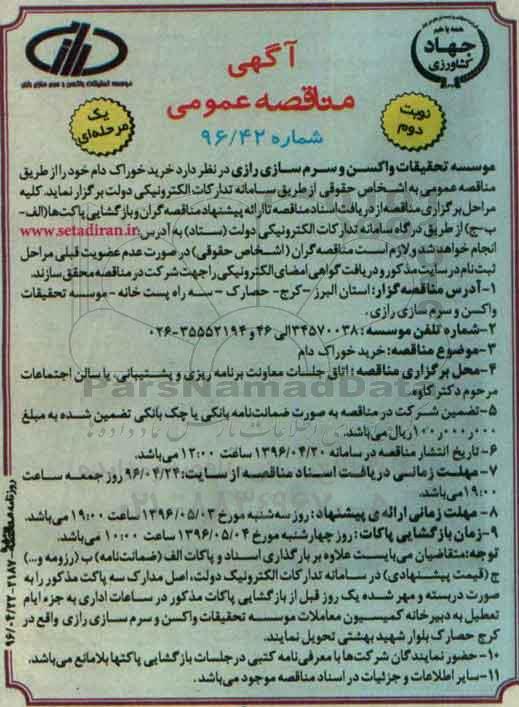 همه با هم
جهاد
کشاورزی
آگهی
مناقصه عمومی
شماره ۹۶/۴۲
موسسه تحقیقات واکسن و سرم سازی رازی
یک
مرحله‌ای
نوبت
دوم
موسسه تحقیقات واکسن و سرم سازی رازی در نظر دارد خرید خوراک دام خود را از طریق
مناقصه عمومی به اشخاص حقوقی از طریق سامانه تدارکات الکترونیکی دولت برگزار نماید. کلیه
مراحل برگزاری مناقصه از دریافت اسناد مناقصه تا ارائه پیشنهاد مناقصه گران و بازگشایی پاکت‌ها (الف-
ب-ج) از طریق درگاه سامانه تدارکات الکترونیکی دولت (ستاد) به آدرس: www.setadiran.ir
انجام خواهد شد و لازم است مناقصه گران (اشخاص حقوقی) در صورت عدم عضویت قبلی مراحل
ثبت نام در سایت مذکور و دریافت گواهی امضای الکترونیکی را جهت شرکت در مناقصه محقق سازند.
۱-آدرس مناقصه گزار: استان البرز -کرج- حصارک - سه راه پست خانه - موسسه تحقیقات
واکسن و سرم سازی رازی.
۲-شماره تلفن موسسه: ۳۴۵۷۰۰۳۸ الی ۴۶ و ۳۵۵۵۲۱۹۴-۰۲۶
۳-موضوع مناقصه: خرید خوراک دام
۴-محل برگزاری مناقصه: اتاق جلسات معاونت برنامه ریزی و پشتیبانی، یا سالن اجتماعات
مرحوم دکتر کاوه.
۵-تضمین شرکت در مناقصه به صورت ضمانت‌نامه بانکی یا چک بانکی تضمین شده به مبلغ
ریال می‌باشد.
۶-تاریخ انتشار مناقصه در سامانه ۱۳۹۶/۰۴/۲۰ ساعت ۱۲:۰۰ می‌باشد.
۷-مهلت زمانی دریافت اسناد مناقصه از سایت: ۹۶/۰۴/۲۴ روز جمعه ساعت
۱۹:۰۰ می‌باشد.
۸- مهلت زمانی ارائه ی پیشنهاد: روز سه‌شنبه مورخ ۱۳۹۶/۰۵/۰۳ ساعت ۱۹:۰۰ می‌باشد.
۹-زمان بازگشایی پاکات: روز چهارشنبه مورخ ۱۳۹۶/۰۵/۰۴ ساعت ۱۰:۰۰ می‌باشد.
توجه: متقاضیان می‌بایست علاوه بر بارگذاری اسناد و پاکات الف (ضمانت‌نامه) ب (رزومه و...)
ج (قیمت پیشنهادی) در سامانه تدارکات الکترونیک دولت، اصل مدارک سه پاکت مذکور را به
صورت دربسته و مهر شده یک روز قبل از بازگشایی پاکات مذکور در ساعات اداری به جزء ایام
تعطیل به دبیرخانه کمیسیون معاملات موسسه تحقیقات واکسن و سرم سازی رازی واقع در
کرج حصارک بلوار شهید بهشتی تحویل نمایند.
۱۰-حضور نمایندگان شرکت‌ها با معرفی‌نامه کتبی در جلسات بازگشایی پاکتها بلامانع می‌باشد.
۱۱-سایر اطلاعات و جزئیات در اسناد مناقصه موجود می‌باشد.
ParsNamadData